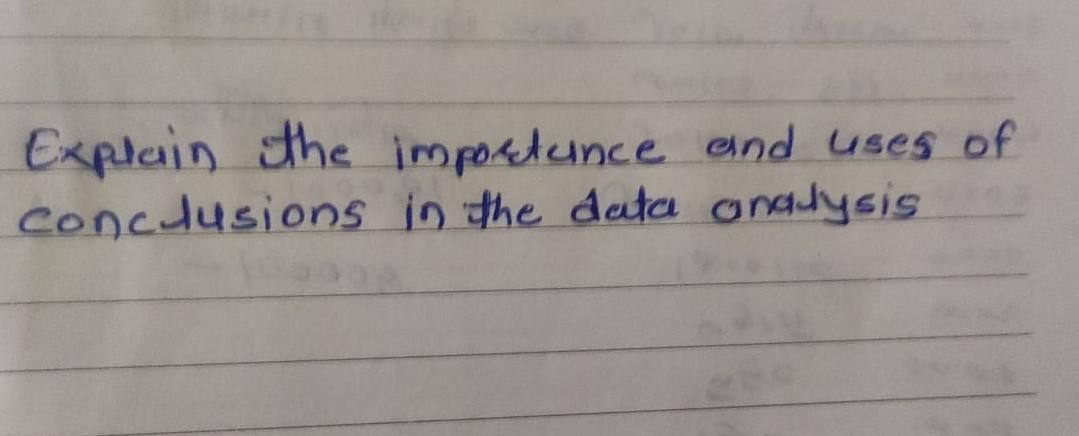 Explain the importance and uses of
conclusions in the data analysis